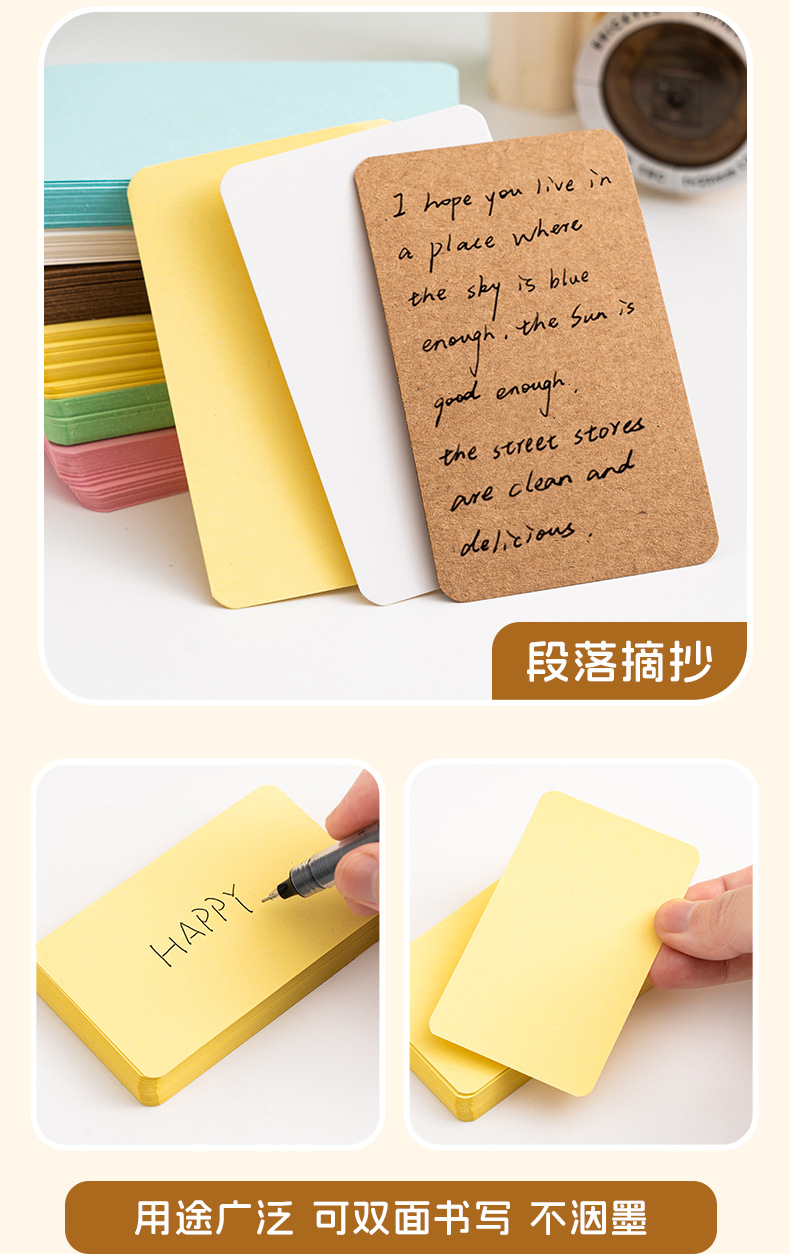 I hope you live in
a place where
the sky is blue
enough. the Sun is
good enough.
the street stores
are clean and
delicious.
段落摘抄
HAPPY
用途广泛 可双面书写 不洇墨